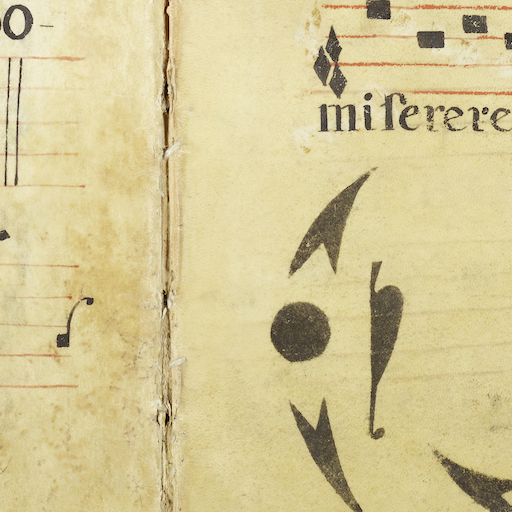 miſerere